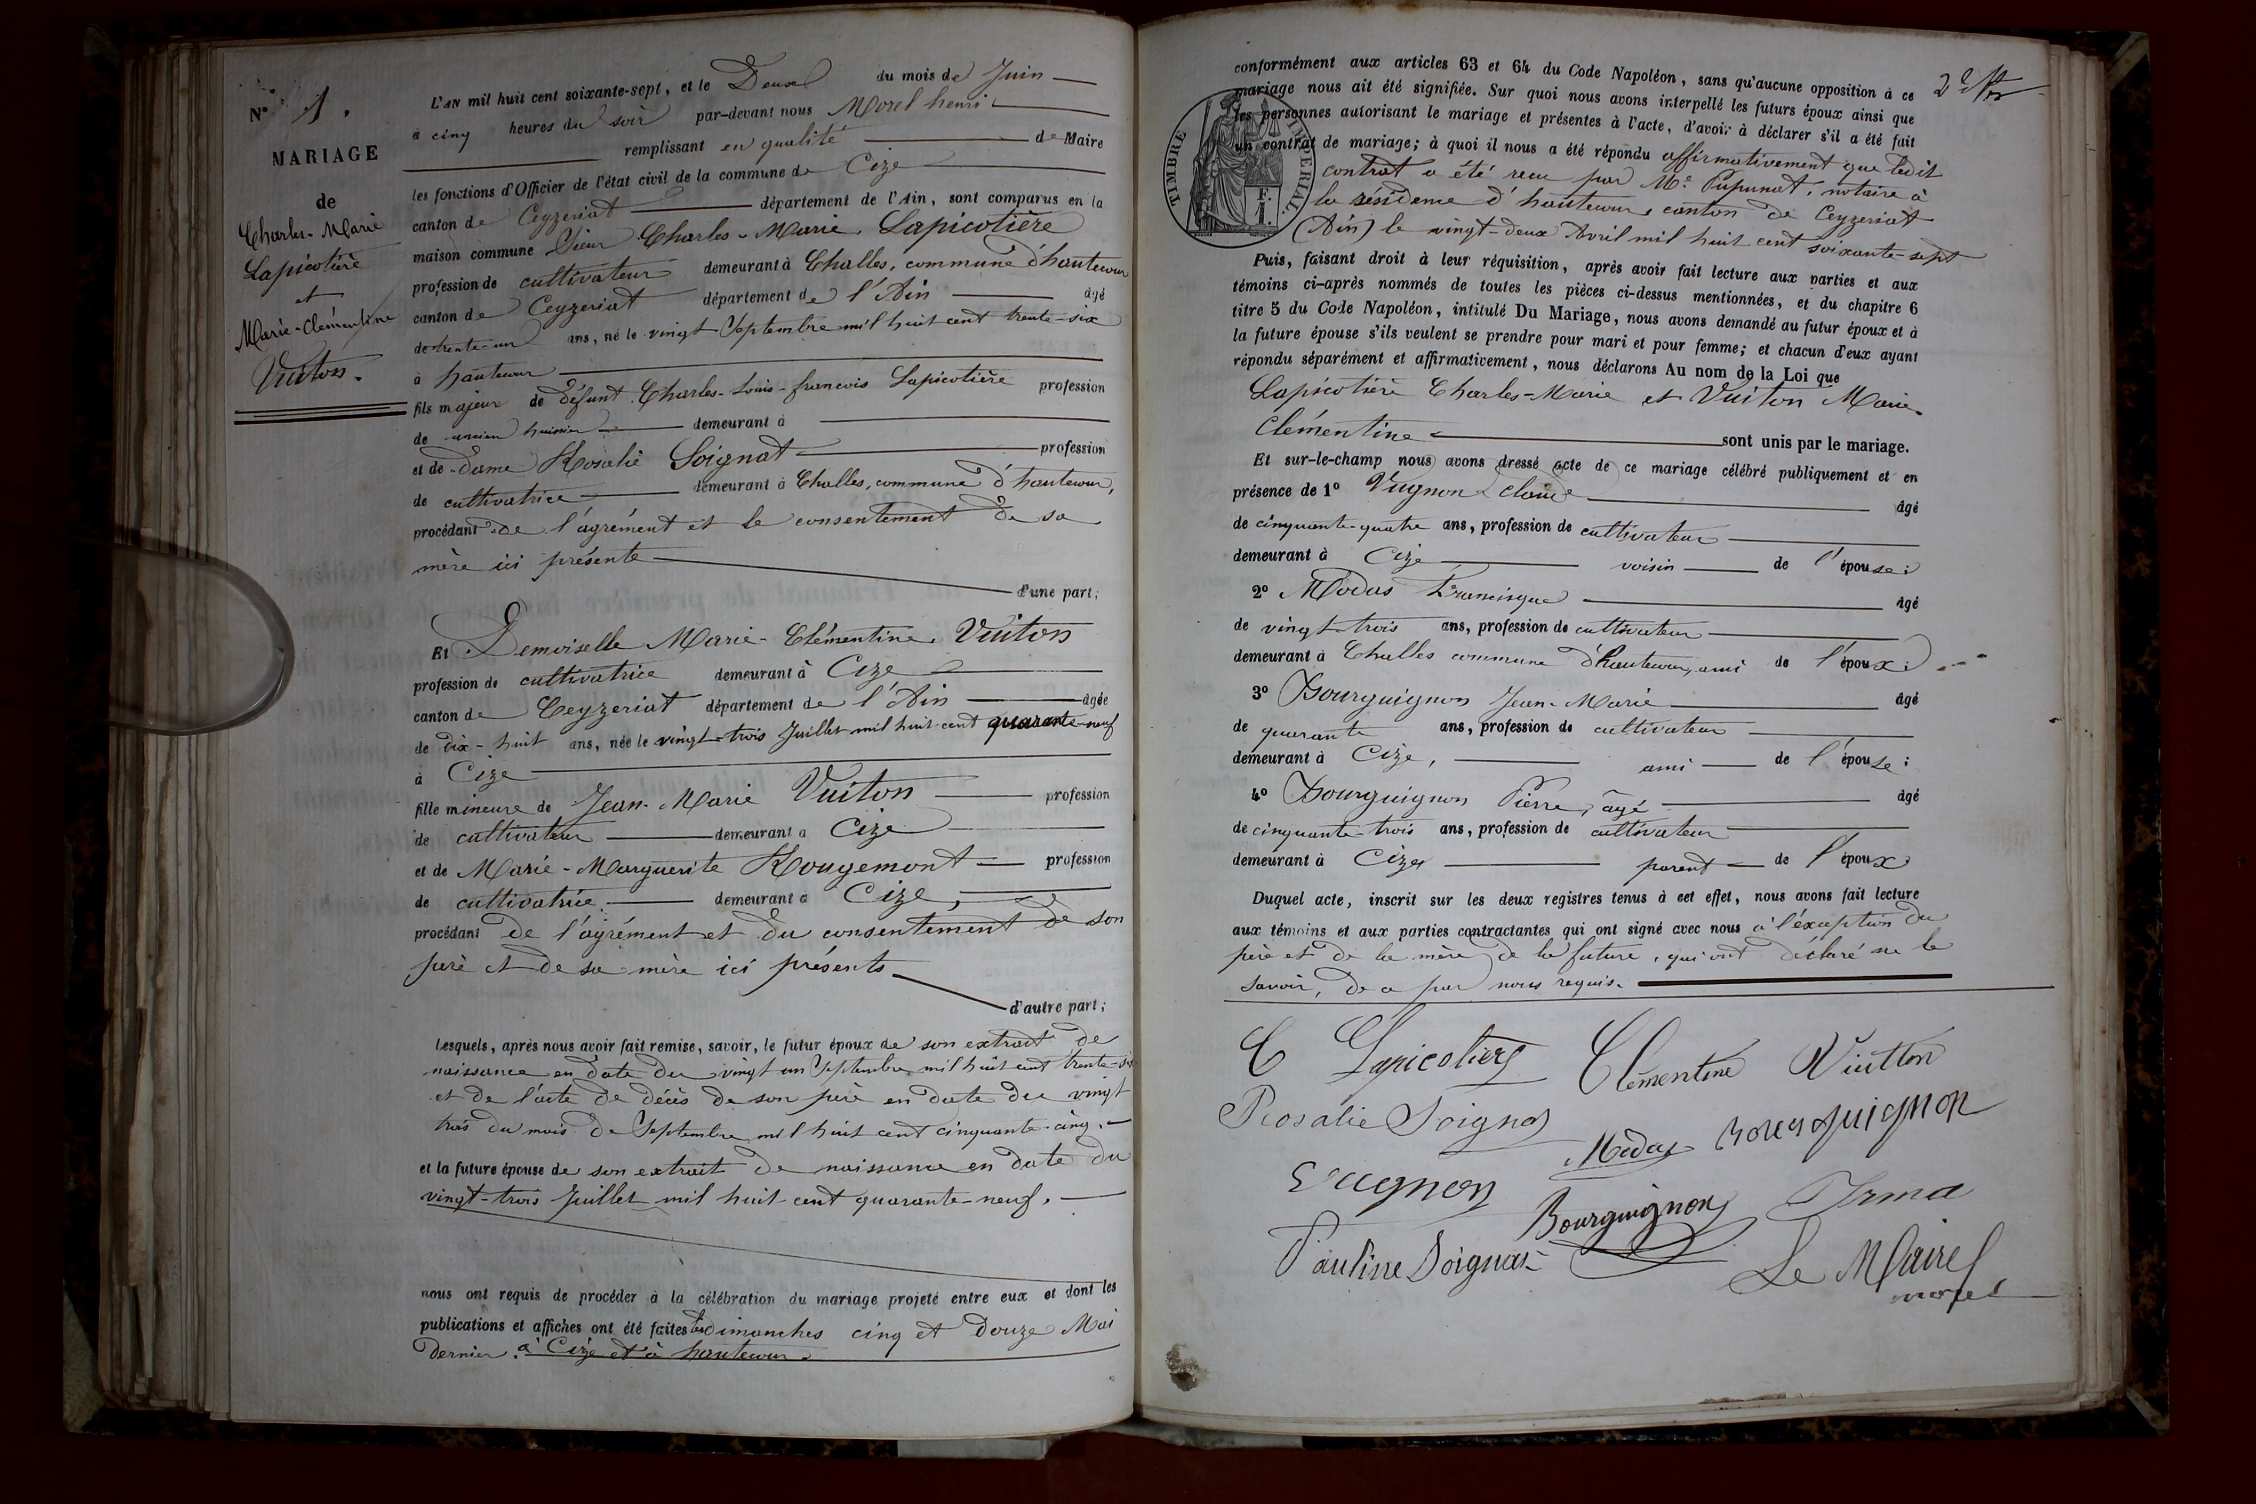 N° 1.
MARIAGE
de
Charles-Marie
Lapicotière
et
Marie-Clémentine
Vuiton.
L'AN mil huit cent soixante-sept, et le Deux du mois de Juin
à cinq heures du soir par-devant nous Morel henri
remplissant en qualité de Maire
les fonctions d'Officier de l'état civil de la commune de Cize
canton de Ceyzeriat département de l'Ain, sont comparus en la
maison commune Sieur Charles-Marie Lapicotière
profession de cultivateur demeurant à Challes, commune d'hautecour
canton de Ceyzeriat département de l'Ain âgé
de trente-un ans, né le vingt Septembre mil huit cent trente-six
à hautecour
fils majeur de défunt Charles-Louis-francois Lapicotière profession
de ancien huissier demeurant à
et de dame Rosalie Soignat profession
de cultivatrice demeurant à Challes, commune d'hautecour,
procédant de l'agrément et le consentement de sa
mère ici présente
d'une part;
Et Demoiselle Marie-Clémentine Vuiton
profession de cultivatrice demeurant à Cize
canton de Ceyzeriat département de l'Ain âgée
de dix-huit ans, née le vingt-trois Juillet mil huit cent quarante-neuf
à Cize
fille mineure de Jean-Marie Vuiton profession
de cultivateur demeurant à Cize
et de Marie-Marguerite Rougemont profession
de cultivatrice demeurant à Cize,
procédant de l'agrément et du consentement de son
père et de sa mère ici présents
d'autre part;
Lesquels, après nous avoir fait remise, savoir, le futur époux de son extrait de
naissance en date du vingt un Septembre mil huit cent trente-six
et de l'acte de décès de son père en date du vingt
trois du mois de Septembre mil huit cent cinquante-cinq.
et la future épouse de son extrait de naissance en date du
vingt-trois Juillet mil huit cent quarante-neuf.
nous ont requis de procéder à la célébration du mariage projeté entre eux et dont les
publications et affiches ont été faites les dimanches cinq et douze Mai
dernier à Cize et à hautecour.
conformément aux articles 63 et 64 du Code Napoléon, sans qu'aucune opposition à ce
mariage nous ait été signifiée. Sur quoi nous avons interpellé les futurs époux ainsi que
les personnes autorisant le mariage et présentes à l'acte, d'avoir à déclarer s'il a été fait
un contrat de mariage; à quoi il nous a été répondu affirmativement que ledit
contrat a été recu par Me Pupunat, notaire à
la résidence d'hautecour canton de Ceyzeriat
(Ain) le vingt-deux Avril mil huit cent soixante-sept
TIMBRE IMPÉRIAL.
Puis, faisant droit à leur réquisition, après avoir fait lecture aux parties et aux
témoins ci-après nommés de toutes les pièces ci-dessus mentionnées, et du chapitre 6
titre 5 du Code Napoléon, intitulé Du Mariage, nous avons demandé au futur époux et à
la future épouse s'ils veulent se prendre pour mari et pour femme; et chacun d'eux ayant
répondu séparément et affirmativement, nous déclarons Au nom de la Loi que
Lapicotière Charles-Marie et Vuiton Marie
Clémentine sont unis par le mariage.
Et sur-le-champ nous avons dressé acte de ce mariage célébré publiquement et en
présence de 1° Vugnon Claude âgé
de cinquante-quatre ans, profession de cultivateur
demeurant à Cize voisin de l'épouse;
2° Modas Francisque âgé
de vingt-trois ans, profession de cultivateur
demeurant à Challes commune d'hautecour, ami de l'époux;
3° Bourguignon Jean-Marie âgé
de quarante ans, profession de cultivateur
demeurant à Cize, ami de l'épouse;
4° Bourguignon Pierre, âgé âgé
de cinquante-trois ans, profession de cultivateur
demeurant à Cize parent de l'époux
Duquel acte, inscrit sur les deux registres tenus à cet effet, nous avons fait lecture
aux témoins et aux parties contractantes qui ont signé avec nous à l'exception du
père et de la mère de la future, qui ont déclaré ne le
savoir, de ce par nous requis.
C Lapicotière Clémentine Vuitton
Rosalie Soignat
Modas Bourguignon
Vugnon
Bourguignon Irma
Pauline Soignat
Le Maire
morel